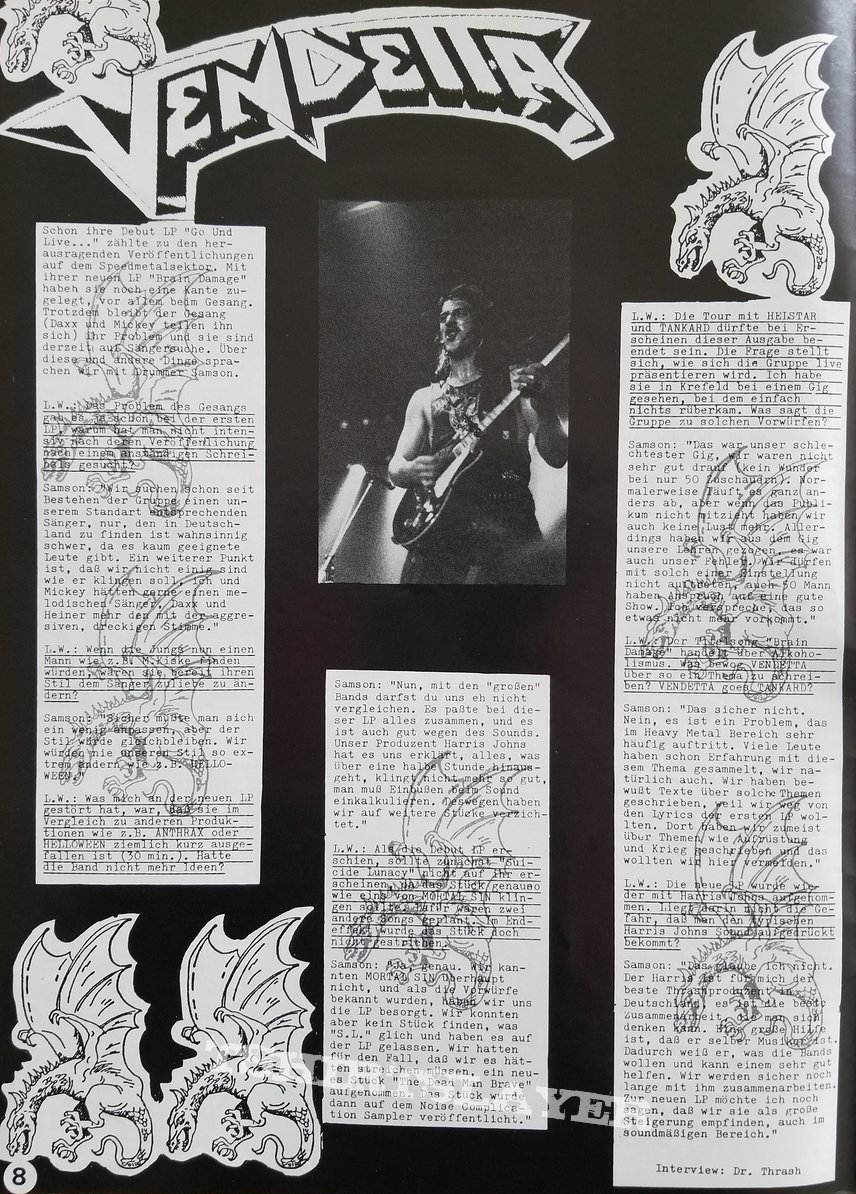 VENDETTA
Schon ihre Debut LP "Go Und
Live..." zählte zu den her-
ausragenden Veröffentlichungen
auf dem Speedmetalsektor. Mit
ihrer neuen LP "Brain Damage"
haben sie noch eine Kante zu-
gelegt, vor allem beim Gesang.
Trotzdem bleibt der Gesang
(Daxx und Mickey teilen ihn
sich) ihr Problem und sie sind
derzeit auf Sängersuche. Über
diese und andere Dinge spra-
chen wir mit Drummer Samson.
L.W.: Das Problem des Gesangs
gab es ja schon bei der ersten
LP, warum hat man nicht inten-
siv nach deren Veröffentlichung
nach einem anständigen Schrei-
hals gesucht?
Samson: "Wir suchen schon seit
Bestehen der Gruppe einen un-
serem Standart entsprechenden
Sänger, nur, den in Deutsch-
land zu finden ist wahnsinnig
schwer, da es kaum geeignete
Leute gibt. Ein weiterer Punkt
ist, daß wir nicht einig sind
wie er klingen soll, ich und
Mickey hätten gerne einen me-
lodischen Sänger, Daxx und
Heiner mehr den mit der aggre-
siven, dreckigen Stimme."
L.W.: Wenn die Jungs nun einen
Mann wie z.B. M.Kiske finden
würden, wären sie bereit ihren
Stil dem Sänger zuliebe zu än-
dern?
Samson: "Sicher müßte man sich
ein wenig anpassen, aber der
Stil würde gleichbleiben. Wir
würden nie unseren Stil so ex-
trem ändern wie z.B. HELLO-
WEEN."
L.W.: Was mich an der neuen LP
gestört hat, war, daß sie im
Vergleich zu anderen Produk-
tionen wie z.B. ANTHRAX oder
HELLOWEEN ziemlich kurz ausge-
fallen ist (30 min.). Hatte
die Band nicht mehr Ideen?
Samson: "Nun, mit den "großen"
Bands darfst du uns eh nicht
vergleichen. Es paßte bei die-
ser LP alles zusammen, und es
ist auch gut wegen des Sounds.
Unser Produzent Harris Johns
hat es uns erklärt, alles, was
über eine halbe Stunde hinaus-
geht, klingt nicht mehr so gut,
man muß Einbußen beim Sound
einkalkulieren. Deswegen haben
wir auf weitere Stücke verzich-
tet."
L.W.: Als die Debut LP er-
schien, sollte zunächst "Sui-
cide Lunacy" nicht auf ihr er-
scheinen, da das Stück genauso
wie eins von MORTAL SIN klin-
gen sollte. Dafür waren zwei
andere Songs geplant. Im End-
effekt wurde das Stück doch
nicht gestrichen.
Samson: "Ja, genau. Wir kan-
nten MORTAL SIN überhaupt
nicht, und als die Vorwürfe
bekannt wurden, haben wir uns
die LP besorgt. Wir konnten
aber kein Stück finden, was
"S.L." glich und haben es auf
der LP gelassen. Wir hatten
für den Fall, daß wir es hät-
ten streichen müssen, ein neu-
Stück "The Dead Man Brave"
aufgenommen. Das Stück wurde
dann auf dem Noise Complica-
tion Sampler veröffentlicht."
L.W.: Die Tour mit HELSTAR
und TANKARD dürfte bei Er-
scheinen dieser Ausgabe be-
endet sein. Die Frage stellt
sich, wie sich die Gruppe live
präsentieren wird. Ich habe
sie in Krefeld bei einem Gig
gesehen, bei dem einfach
nichts rüberkam. Was sagt die
Gruppe zu solchen Vorwürfen?
Samson: "Das war unser schle-
chtester Gig, wir waren nicht
sehr gut drauf (kein Wunder
bei nur 50 Zuschauern). Nor-
malerweise läuft es ganz an-
ders ab, aber wenn das Publi-
kum nicht mitzieht haben wir
auch keine Lust mehr. Aller-
dings haben wir aus dem Gig
unsere Lehren gezogen, es war
auch unser Fehler. Wir dürfen
mit solch einer Einstellung
nicht auftreten, auch 50 Mann
haben Anspruch auf eine gute
Show. Ich verspreche, das so
etwas nicht mehr vorkommt."
L.W.: Der Titelsong "Brain
Damage" handelt über Alkoho-
lismus. Was bewog VENDETTA
über so ein Thema zu schrei-
ben? VENDETTA goes TANKARD?
Samson: "Das sicher nicht.
Nein, es ist ein Problem, das
im Heavy Metal Bereich sehr
häufig auftritt. Viele Leute
haben schon Erfahrung mit die-
sem Thema gesammelt, wir na-
türlich auch. Wir haben be-
wußt Texte über solche Themen
geschrieben, weil wir weg von
den Lyrics der ersten LP wol-
lten. Dort haben wir zumeist
über Themen wie Aufrüstung
und Krieg geschrieben und das
wollten wir hier vermeiden."
L.W.: Die neue LP wurde wie-
der mit Harris Johns aufgenom-
men. Liegt darin nicht die Ge-
fahr, daß man den typischen
Harris Johns Sound aufgedrückt
bekommt?
Samson: "Das glaube ich nicht.
Der Harris ist für mich der
beste Thrashproduzent in
Deutschland, es ist die beste
Zusammenarbeit, die man sich
denken kann. Eine große Hilfe
ist, daß er selber Musiker ist.
Dadurch weiß er, was die Bands
wollen und kann einem sehr gut
helfen. Wir werden sicher noch
lange mit ihm zusammenarbeiten.
Zur neuen LP möchte ich noch
sagen, daß wir sie als große
Steigerung empfinden, auch im
soundmäßigen Bereich."
Interview: Dr. Thrash
8